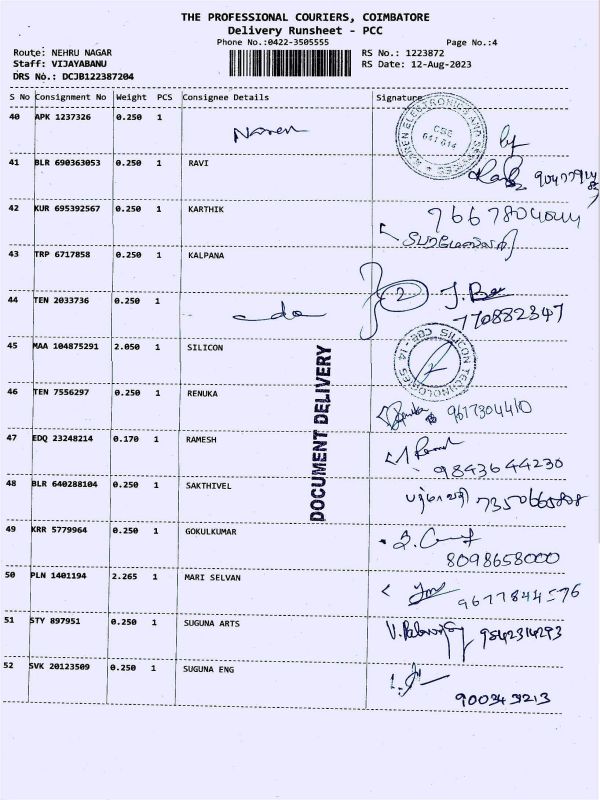 THE PROFESSIONAL COURIERS, COIMBATORE
Delivery Runsheet - PCC
Phone No.:0422-3505555 Page No.:4
Route: NEHRU NAGAR RS No.: 1223872
Staff: VIJAYABANU RS Date: 12-Aug-2023
DRS No.: DCJB122387204
S No Consignment No Weight PCS Consignee Details Signature
40 APK 1237326 0.250 1 Naren
41 BLR 690363053 0.250 1 RAVI
42 KUR 695392567 0.250 1 KARTHIK
43 TRP 6717858 0.250 1 KALPANA
44 TEN 2033736 0.250 1
770882347
45 MAA 104875291 2.050 1 SILICON
SILICON TECHNOLOGIES CBE - 14
46 TEN 7556297 0.250 1 RENUKA
9617304410
47 EDQ 23248214 0.170 1 RAMESH
9843644230
48 BLR 640288104 0.250 1 SAKTHIVEL
49 KRR 5779964 0.250 1 GOKULKUMAR
8098658000
50 PLN 1401194 2.265 1 MARI SELVAN
51 STY 897951 0.250 1 SUGUNA ARTS
9842314293
52 SVK 20123509 0.250 1 SUGUNA ENG
DOCUMENT DELIVERY